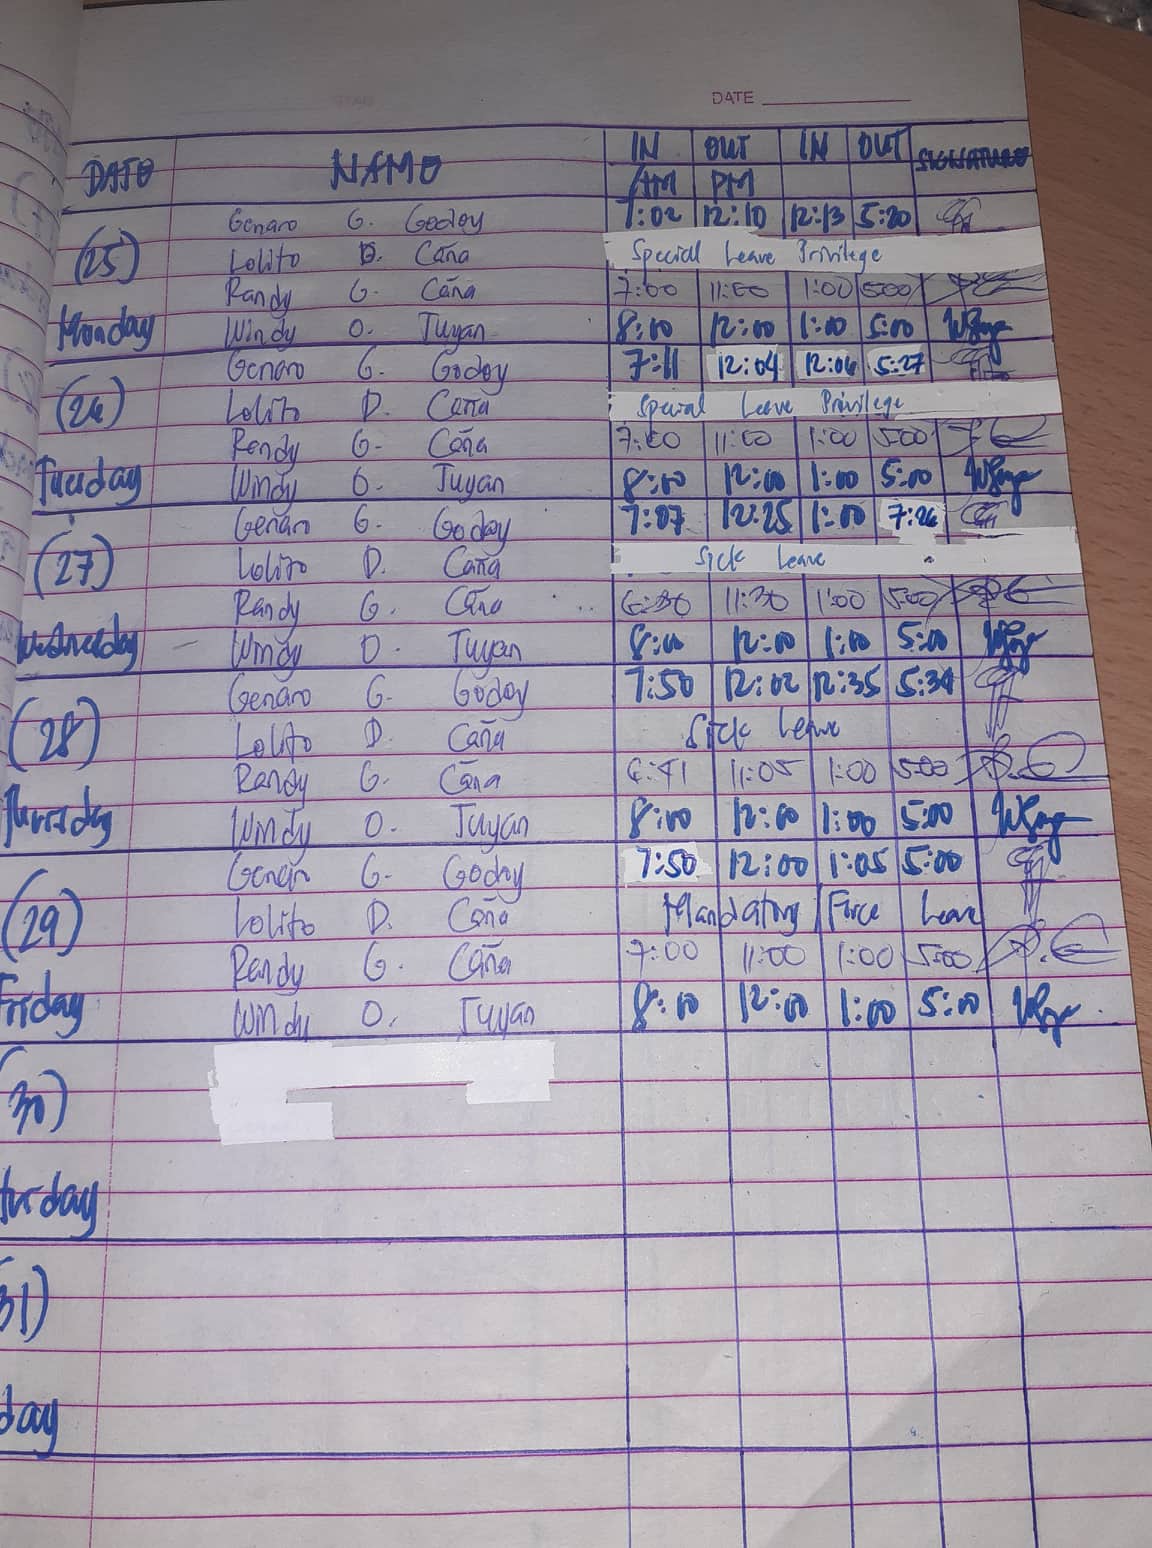 DATE
DATE NAME IN OUT IN OUT SIGNATURE
AM PM
Genaro G. Godoy 7:02 12:10 12:13 5:20
(25) Lolito D. Caña Special Leave Privilege
Randy G. Caña 7:00 11:00 1:00 5:00
Monday Windy O. Tuyan 8:00 12:00 1:00 5:00
Genaro G. Godoy 7:11 12:04 12:06 5:27
(26) Lolito D. Caña Special Leave Privilege
Randy G. Caña 7:00 11:00 1:00 5:00
Tuesday Windy O. Tuyan 8:00 12:00 1:00 5:00
Genaro G. Godoy 7:07 12:25 1:00 7:26
(27) Lolito D. Caña Sick Leave
Randy G. Caña 6:30 11:30 1:00 5:00
Wednesday Windy O. Tuyan 8:00 12:00 1:00 5:00
Genaro G. Godoy 7:50 12:02 12:35 5:34
(28) Lolito D. Caña Sick Leave
Randy G. Caña 6:41 11:05 1:00 5:00
Thursday Windy O. Tuyan 8:00 12:00 1:00 5:00
Genaro G. Godoy 7:50 12:00 1:05 5:00
(29) Lolito D. Caña Mandatory/Force Leave
Randy G. Caña 7:00 11:00 1:00 5:00
Friday Windy O. Tuyan 8:00 12:00 1:00 5:00
(30)
turday
31)
day